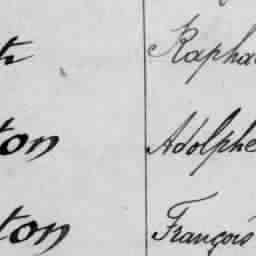 Rapha
ton Adolphe
ton François